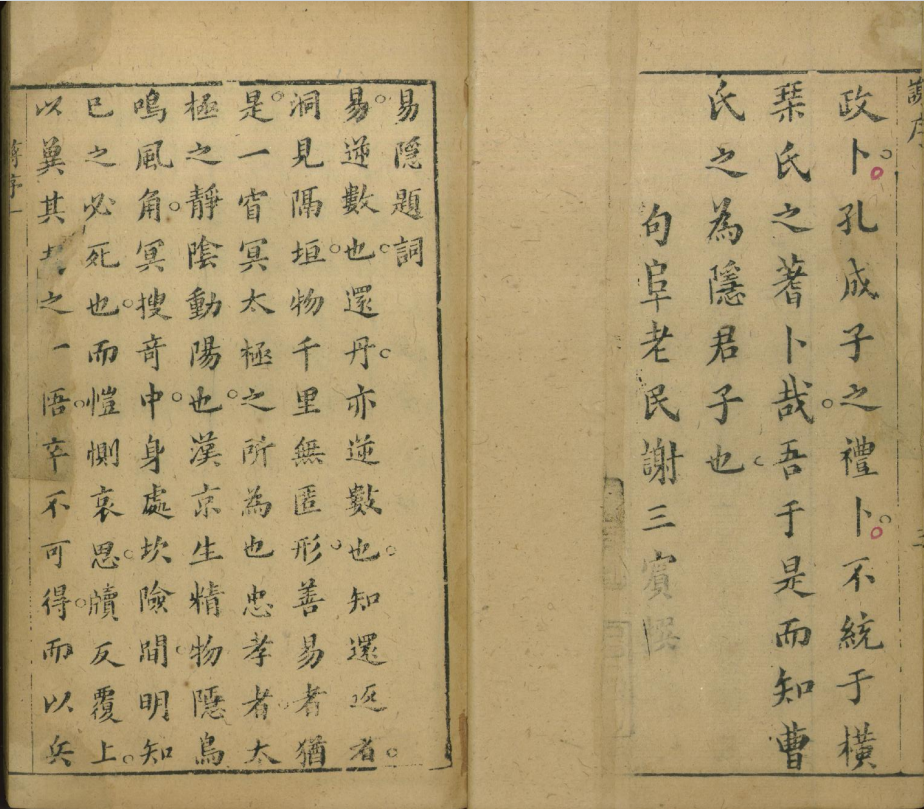 謝序
政卜孔成子之禮卜不統于橫
琹氏之蓍卜哉吾于是而知曹
氏之為隱君子也
句阜老民謝三賓撰
易隱題詞
易逆數也還丹亦逆數也知還返者
洞見隔垣物千里無匿形善易者猶
是一窅冥太極之所為也忠孝者太
極之靜陰動陽也漢京生精物隱烏
鳴風角冥搜竒中身處坎險間明知
已之必死也而愷惻哀思牘反覆上
以冀其之一悟卒不可得而以兵
序一